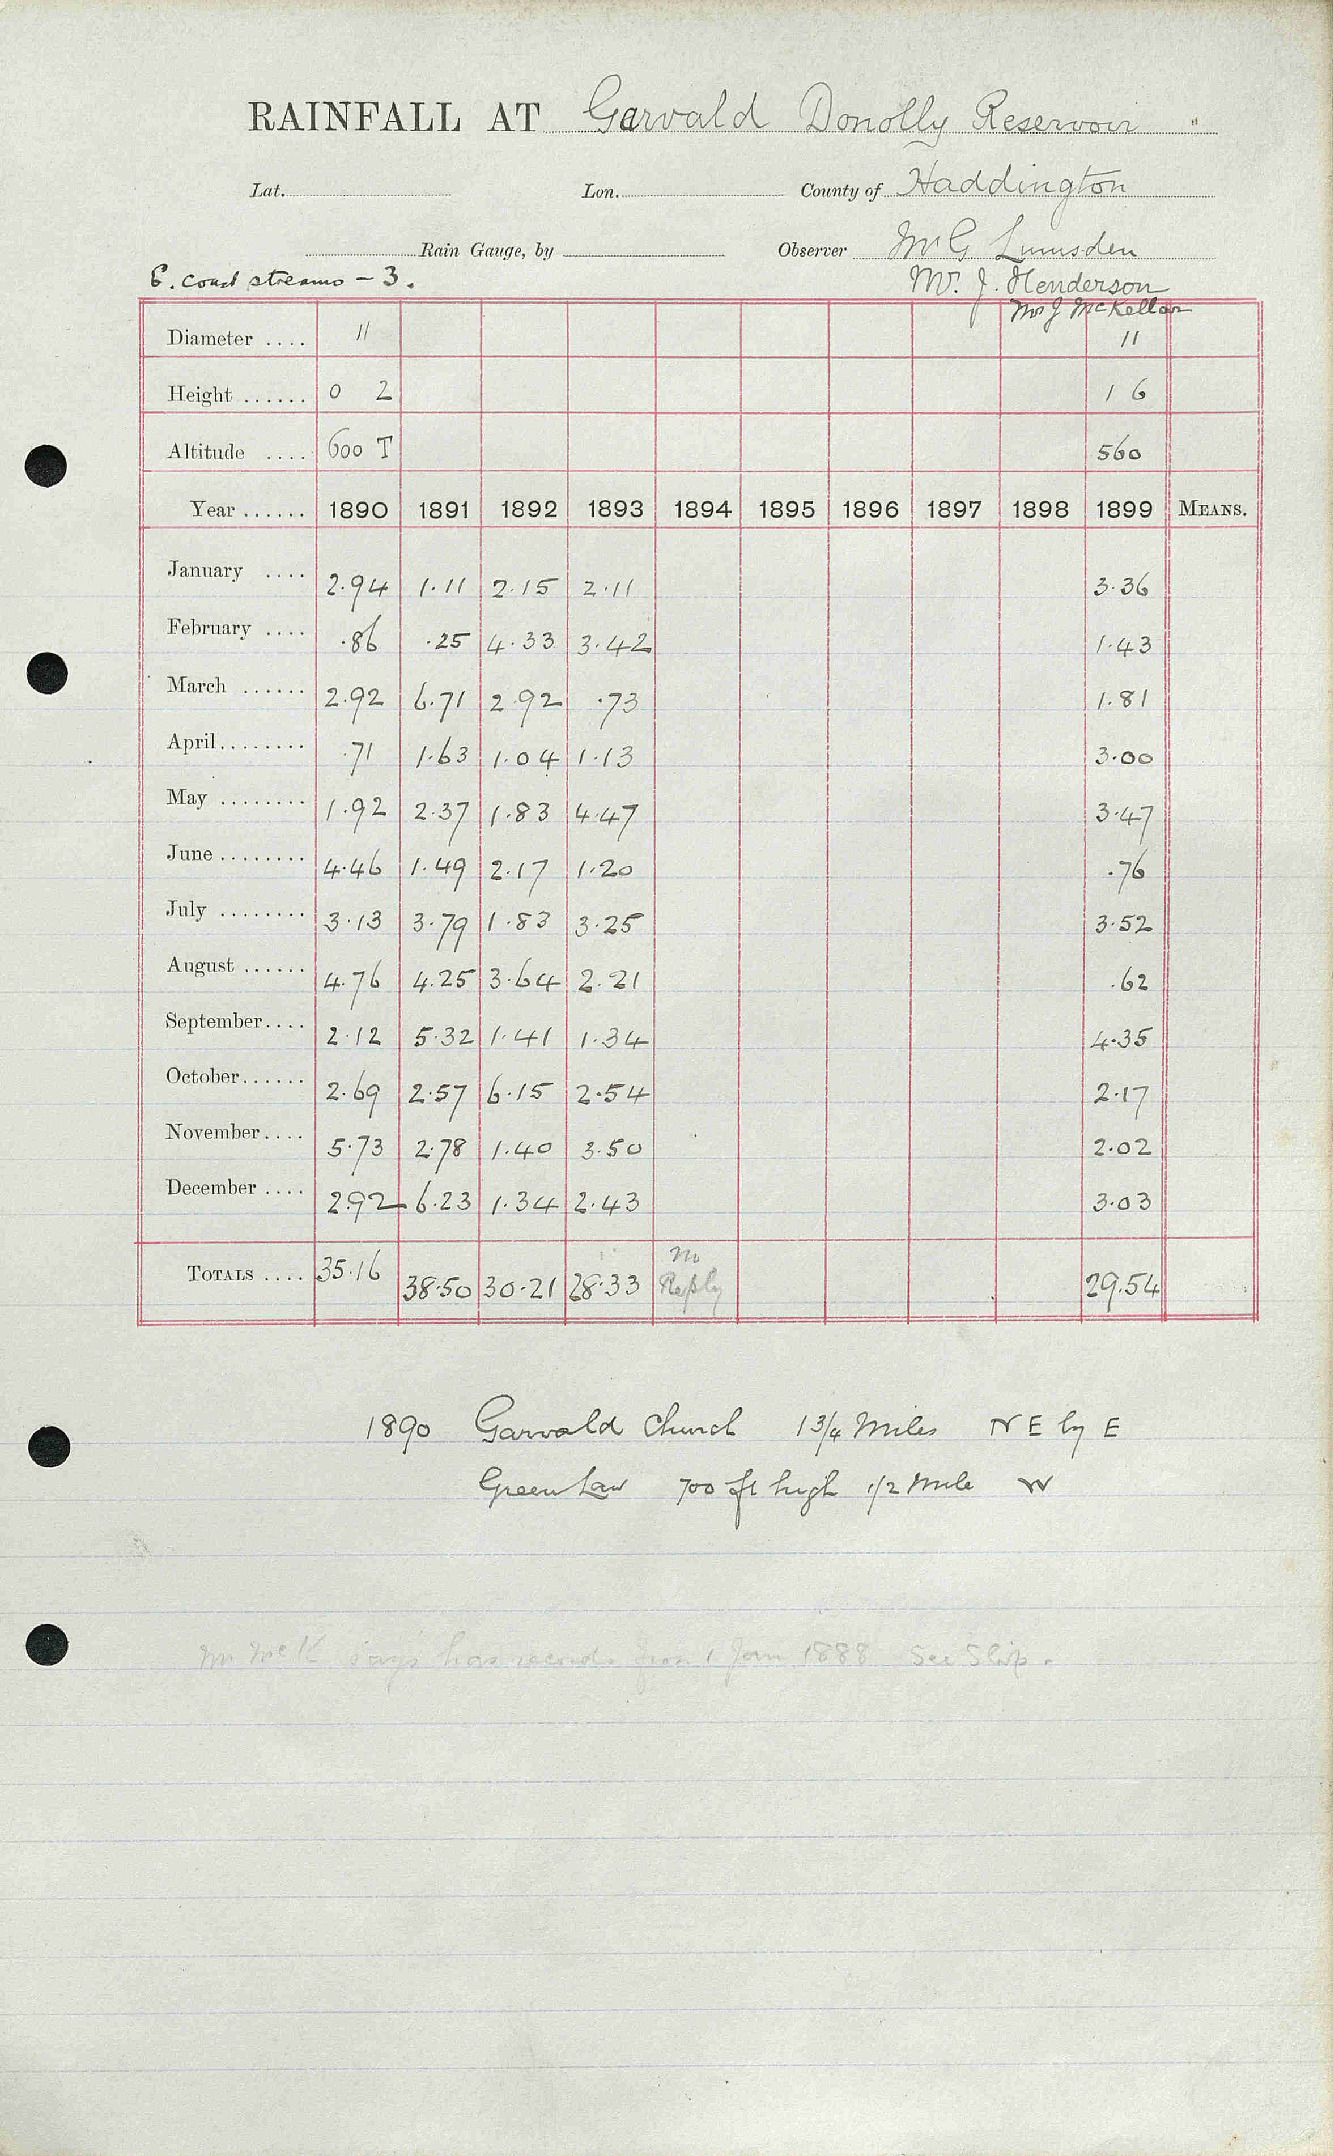 RAINFALL AT Garvald Donolly Reservoir
Lat. Lon. County of Haddington
Rain Gauge, by Observer Mr G Lumsden
E. coast streams - 3. Mr. J. Henderson
Mr J McKellar
Diameter .... 11 11
Height ...... 0 2 1 6
Altitude .... 600 T 560
Year ...... 1890 1891 1892 1893 1894 1895 1896 1897 1898 1899 MEANS.
January .... 2.94 1.11 2.15 2.11 3.36
February .... .86 .25 4.33 3.42 1.43
March ...... 2.92 6.71 2.92 .73 1.81
April ........ .71 1.63 1.04 1.13 3.00
May ........ 1.92 2.37 1.83 4.47 3.47
June ........ 4.46 1.49 2.17 1.20 .76
July ........ 3.13 3.79 1.83 3.25 3.52
August ...... 4.76 4.25 3.64 2.21 .62
September .... 2.12 5.32 1.41 1.34 4.35
October ...... 2.69 2.57 6.15 2.54 2.17
November .... 5.73 2.78 1.40 3.50 2.02
December .... 2.92 6.23 1.34 2.43 3.03
TOTALS .... 35.16 38.50 30.21 28.33 No Reply 29.54
1890 Garvald Church 1 3/4 Miles NE by E
Green Law 700 ft high 1/2 Mile W
Mr McK says has records from 1 Jan 1888 See Slip.